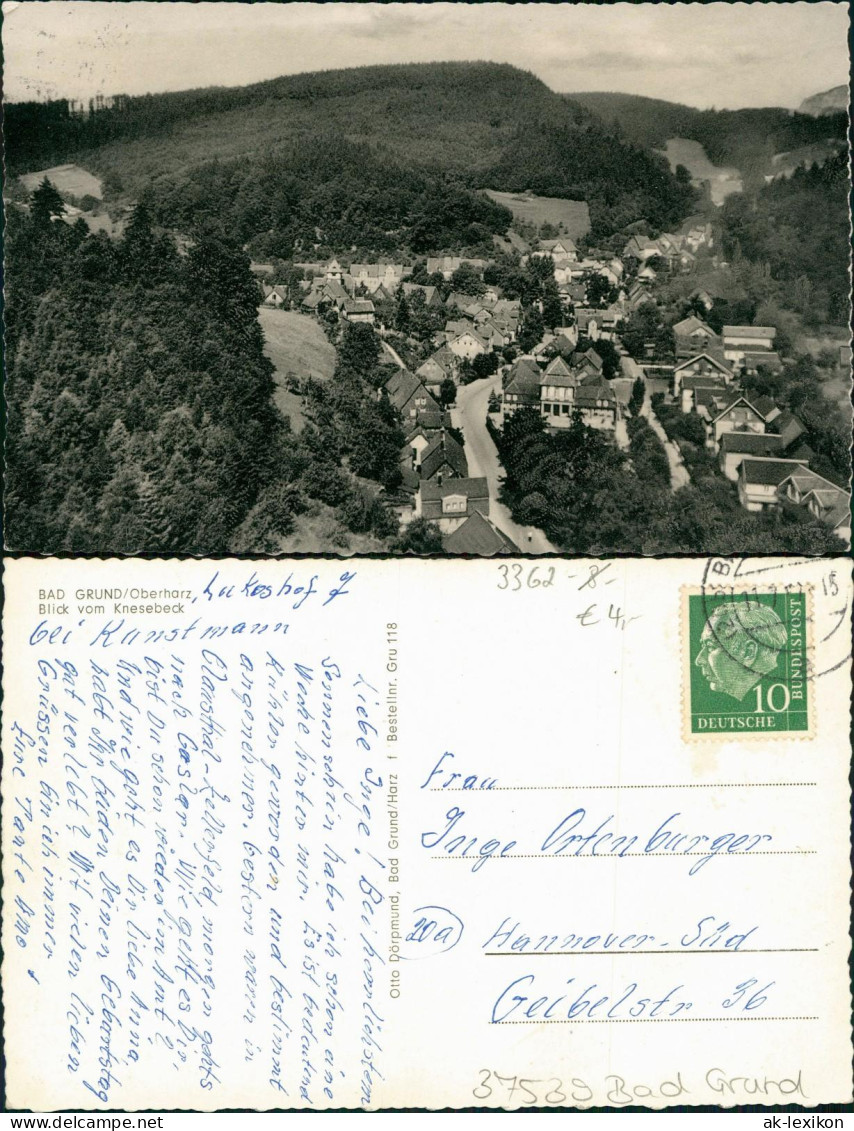 BAD GRUND/Oberharz,
Blick vom Knesebeck
Lukashof 7
bei Kunstmann
Liebe Inge! Bei herrlichstem
Sonnenschein habe ich schon eine
Woche hinter mir. Es ist bedeutend
kühler geworden und bestimmt
angenehmer. Gestern waren in
Clausthal-Zellerfeld morgen gehts
nach Goslar. Wie geht es Dir,
bist Du schon wieder im Amt?
Und wie geht es Dir liebe Anna,
habt Ihr beiden Deinen Geburtstag
gut verlebt? Mit vielen lieben
Grüssen bin ich immer
Eure Tante
Otto Dörpmund, Bad Grund/Harz f Bestellnr. Gru 118
3362 -8-
€ 4,-
15
10
DEUTSCHE
BUNDESPOST
Frau
Inge Ortenburger
20a
Hannover-Süd
Geibelstr 36
37539 Bad Grund
ak-lexikon